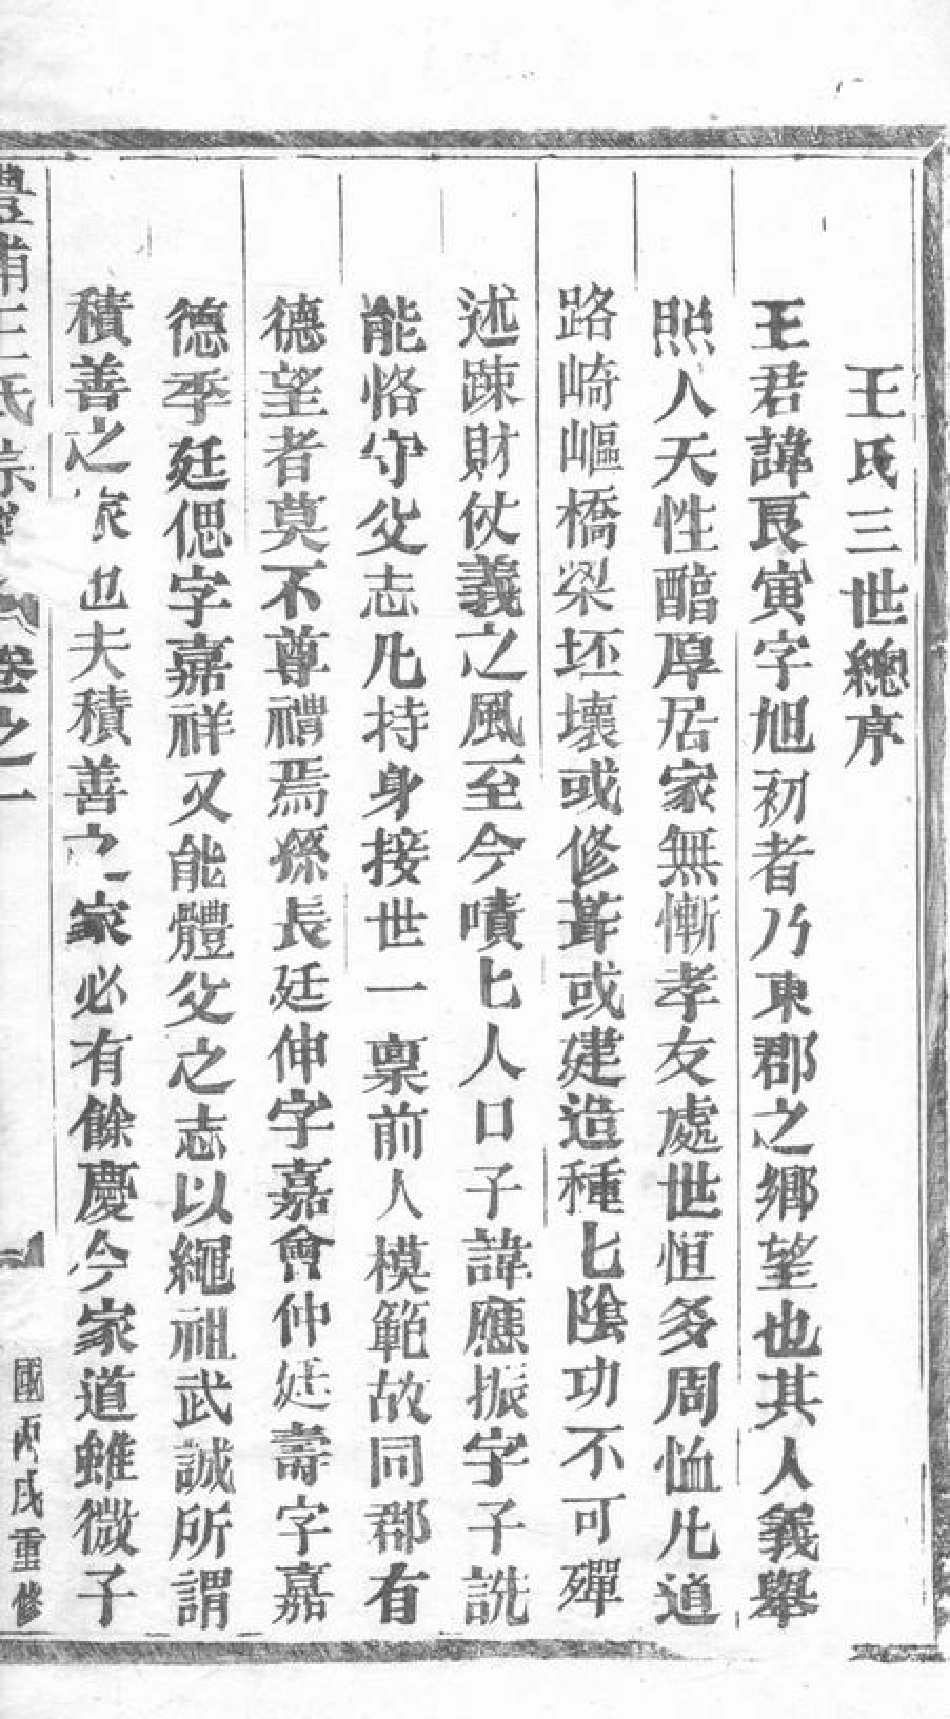 王氏三世總序
王君諱艮寅字旭初者乃東郡之鄉望也其人義舉
照人天性醕厚居家無慚孝友處世恒多周恤凢道
路崎嶇橋梁坯壞或修葺或建造種匕陰功不可殫
述疎財仗義之風至今嘖匕人口子諱應振字子詵
能恪守父志凢持身接世一稟前人模範故同郡有
德望者莫不尊禮焉孫長廷伸字嘉會仲廷壽字嘉
德季廷偲字嘉祥又能體父之志以繩祖武誠所謂
積善之家也夫積善之家必有餘慶今家道雖微子
王氏宗譜 卷之一 國丙戌重修